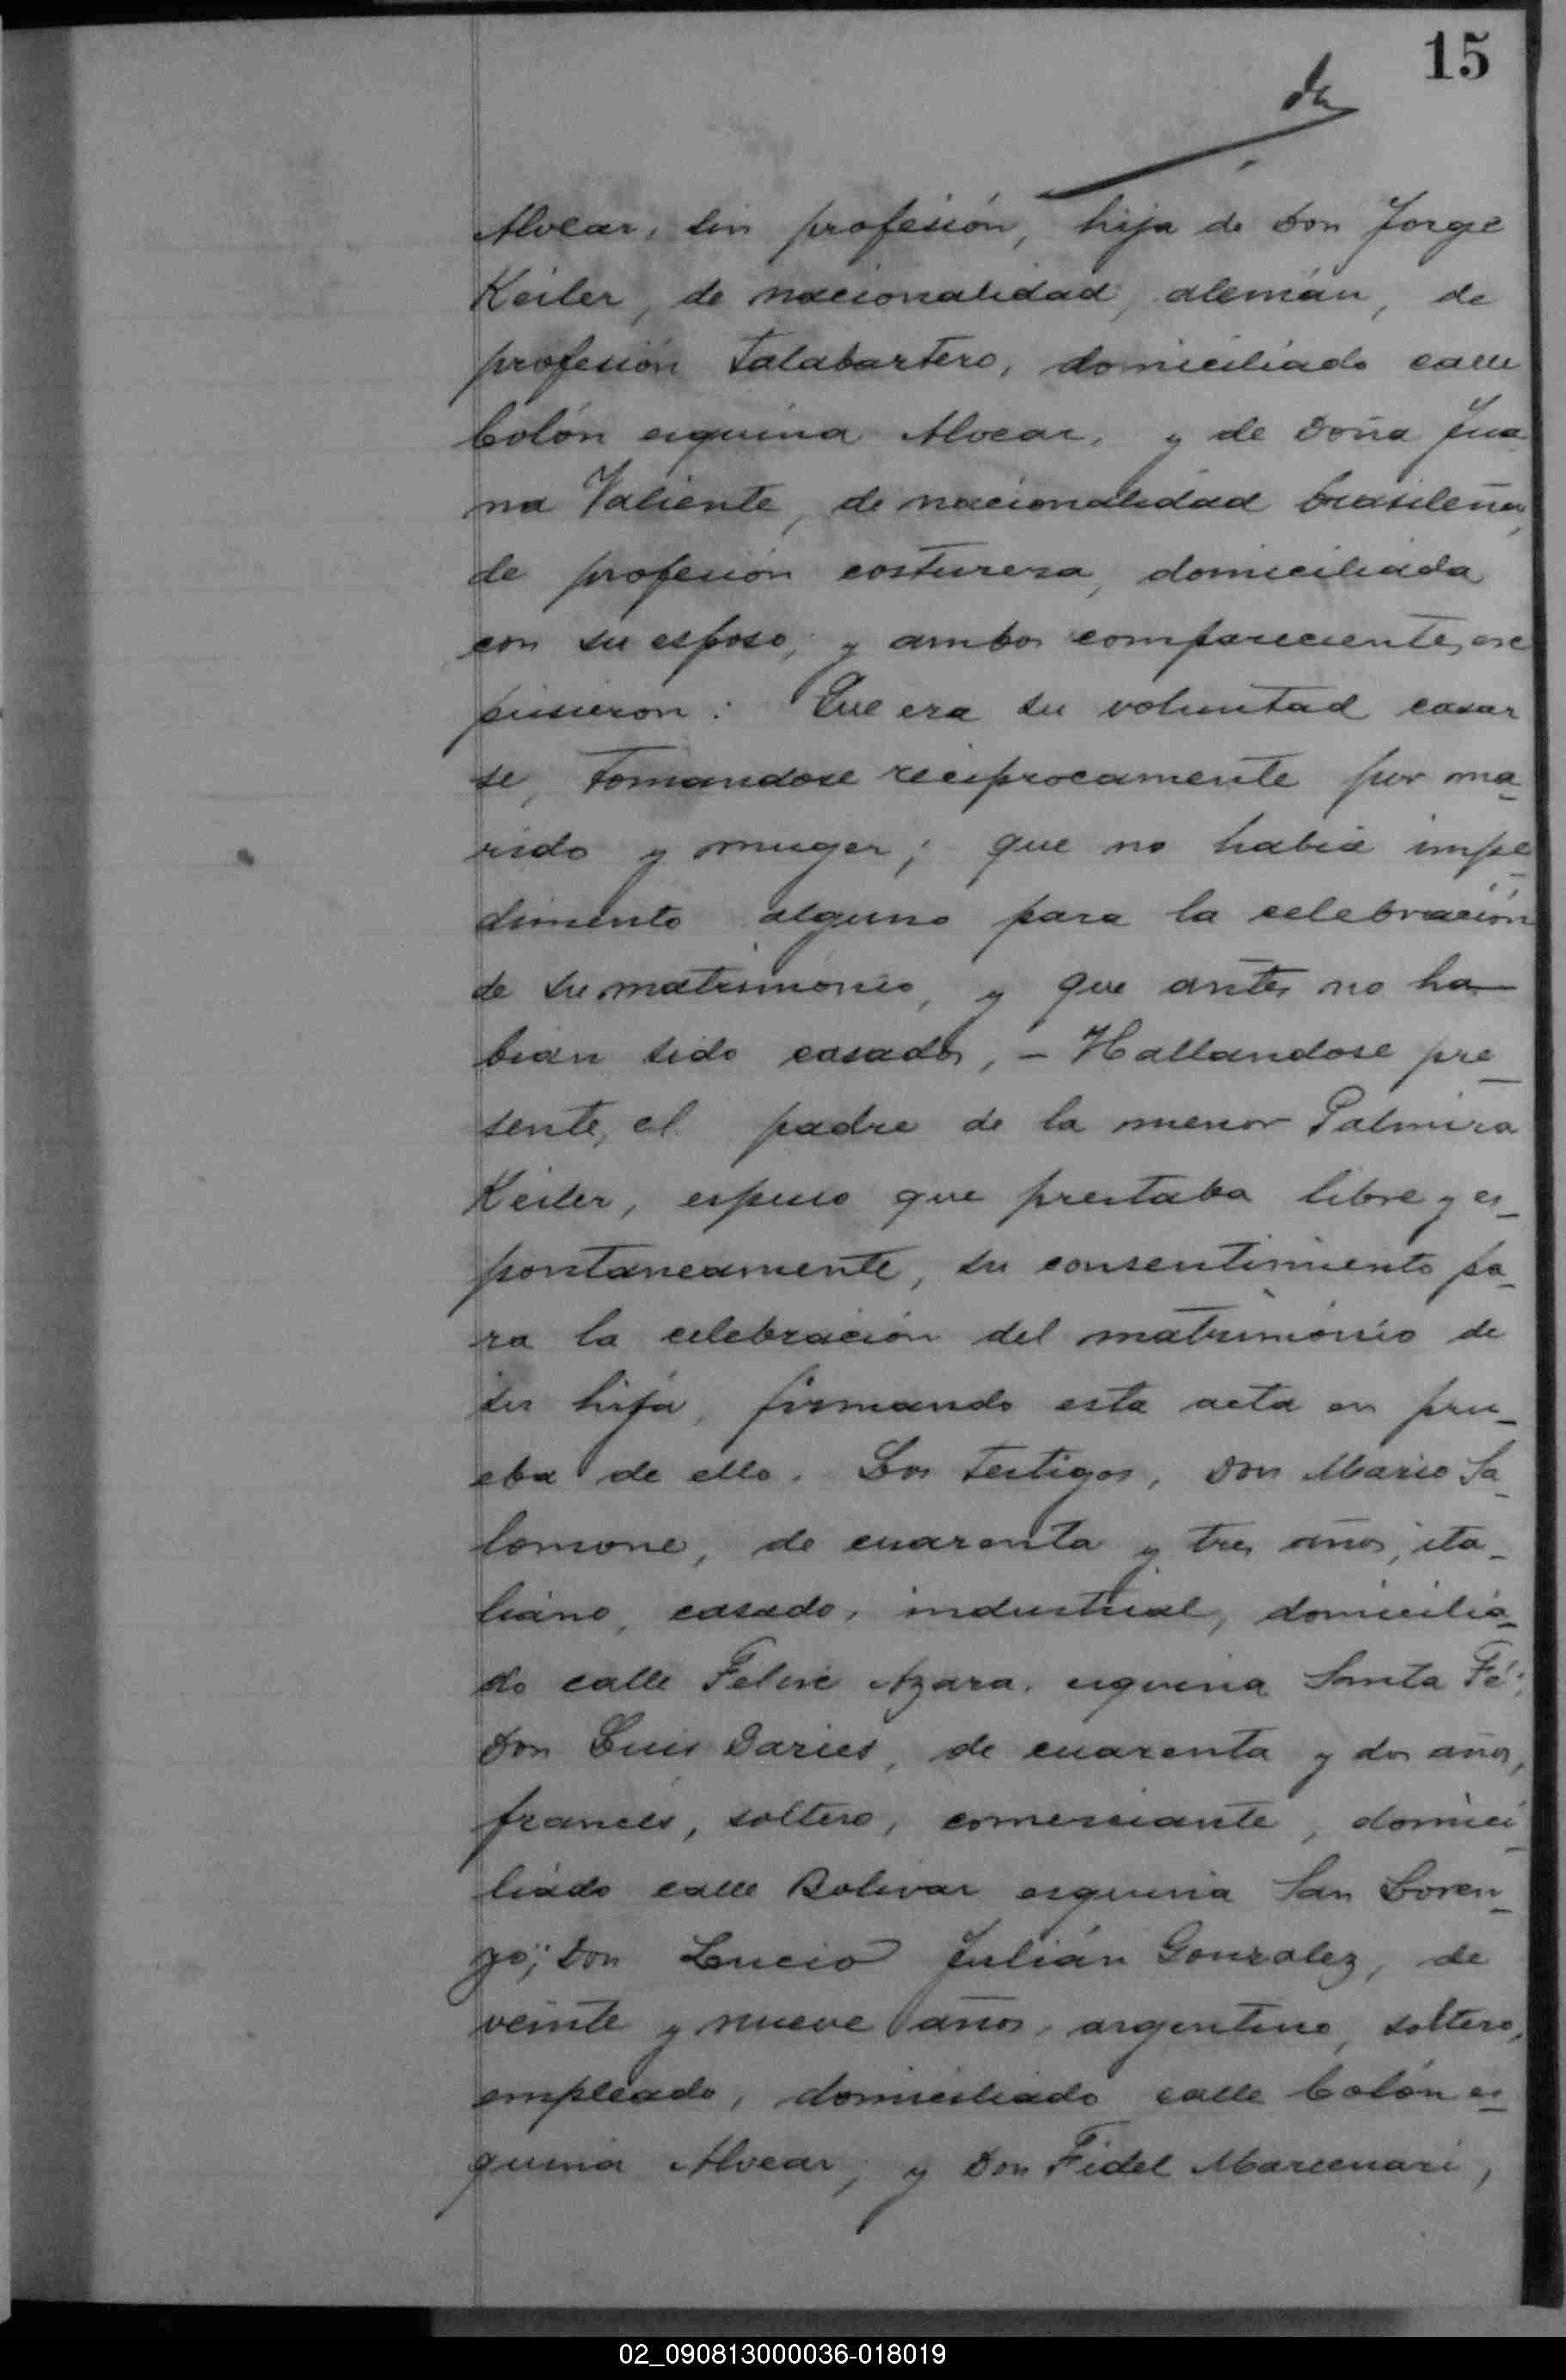 15
Alvear, sin profesión, hija de Don Jorge
Keiler, de nacionalidad, alemán, de
profesión Talabartero, domiciliado calle
Colón esquina Alvear, y de Doña Jua
na Valiente, de nacionalidad brasileña,
de profesión costurera, domiciliada
con su esposo; y ambos comparecientes, ex
pusieron: Que era su voluntad casar
se, tomandose reciprocamente por ma_
rido y muger; que no había impe_
dimento alguno para la celebración
de su matrimonio, y que antes no ha
bian sido casados, - Hallandose pre_
sente, el padre de la menor Palmira
Keiler, espuso que prestaba libre y es_
pontaneamente, su consentimiento pa_
ra la celebración del matrimonio de
su hija, firmando esta acta en pru_
eba de ello. Los testigos, Don Mario Sa_
lomone, de cuarenta y tres años, ita_
liano, casado, industrial, domicilia_
do calle Felix Azara, esquina Santa Fé;
Don Luis Daries, de cuarenta y dos años,
francés, soltero, comerciante, domici_
liado calle Bolivar esquina San Loren_
zo; Don Lucio Julián Gonzalez, de
veinte y nueve años, argentino, soltero,
empleado, domiciliado calle Colón es_
quina Alvear; y Don Fidel Marcenari,
02_090813000036-018019